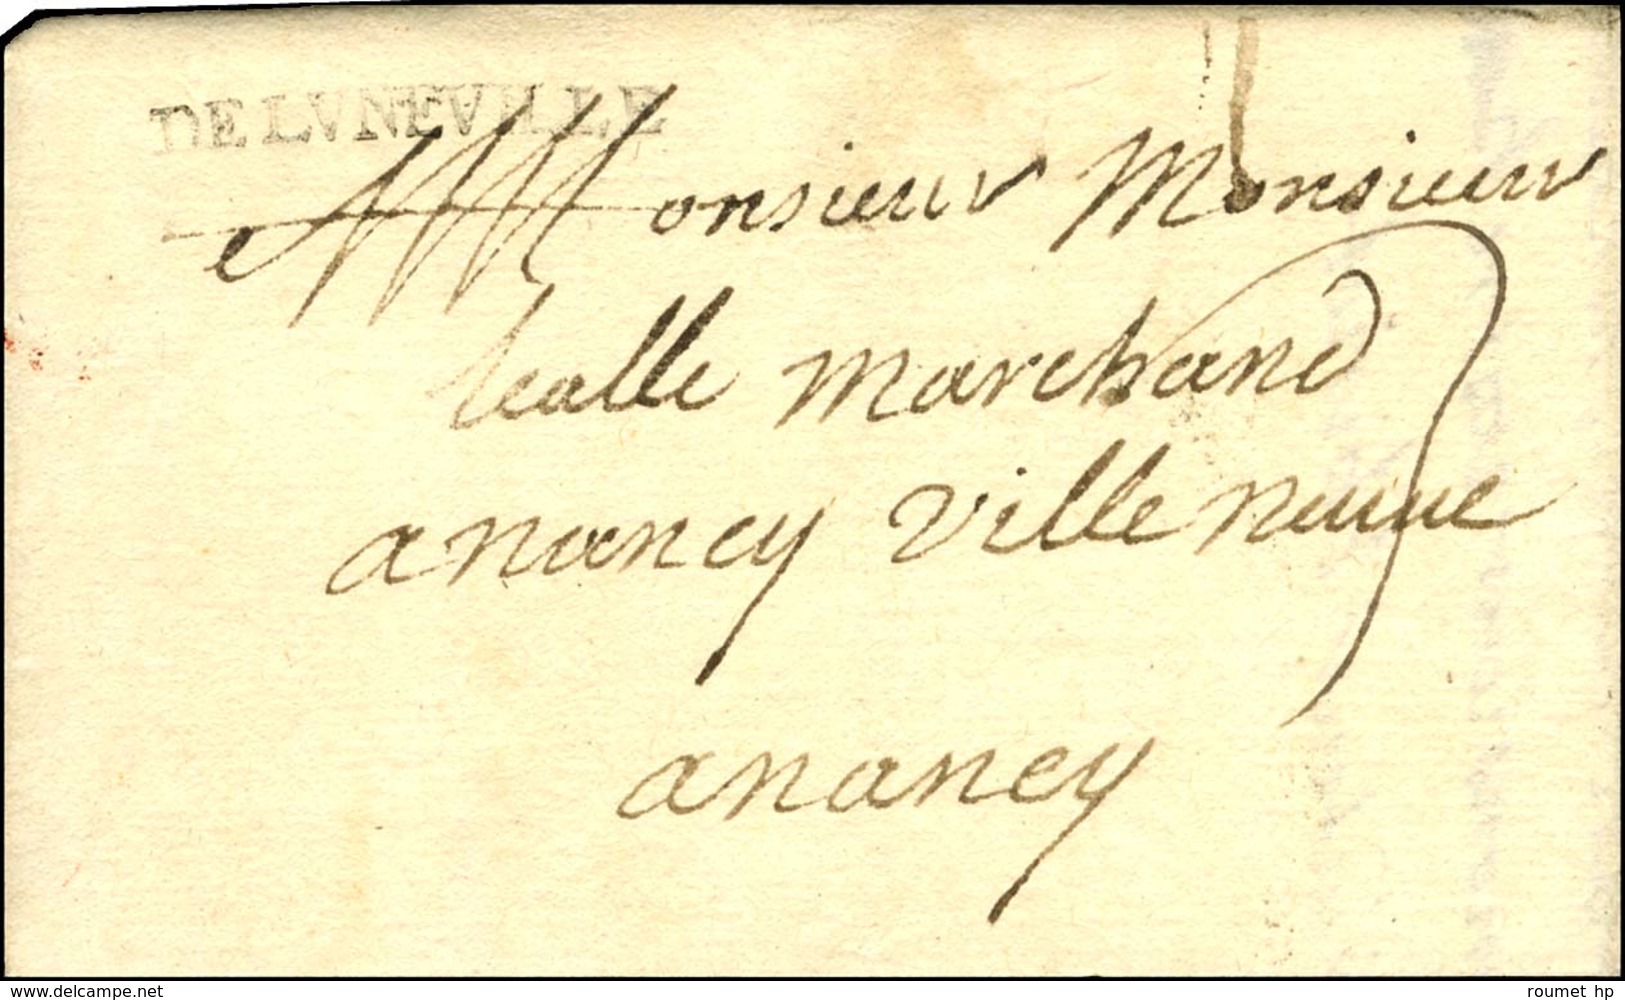 DE LVNEVILLE
Monsieur Monsieur
lealle marchand
a nancy ville neuue
a nancy
www.delcampe.net
roumet hp